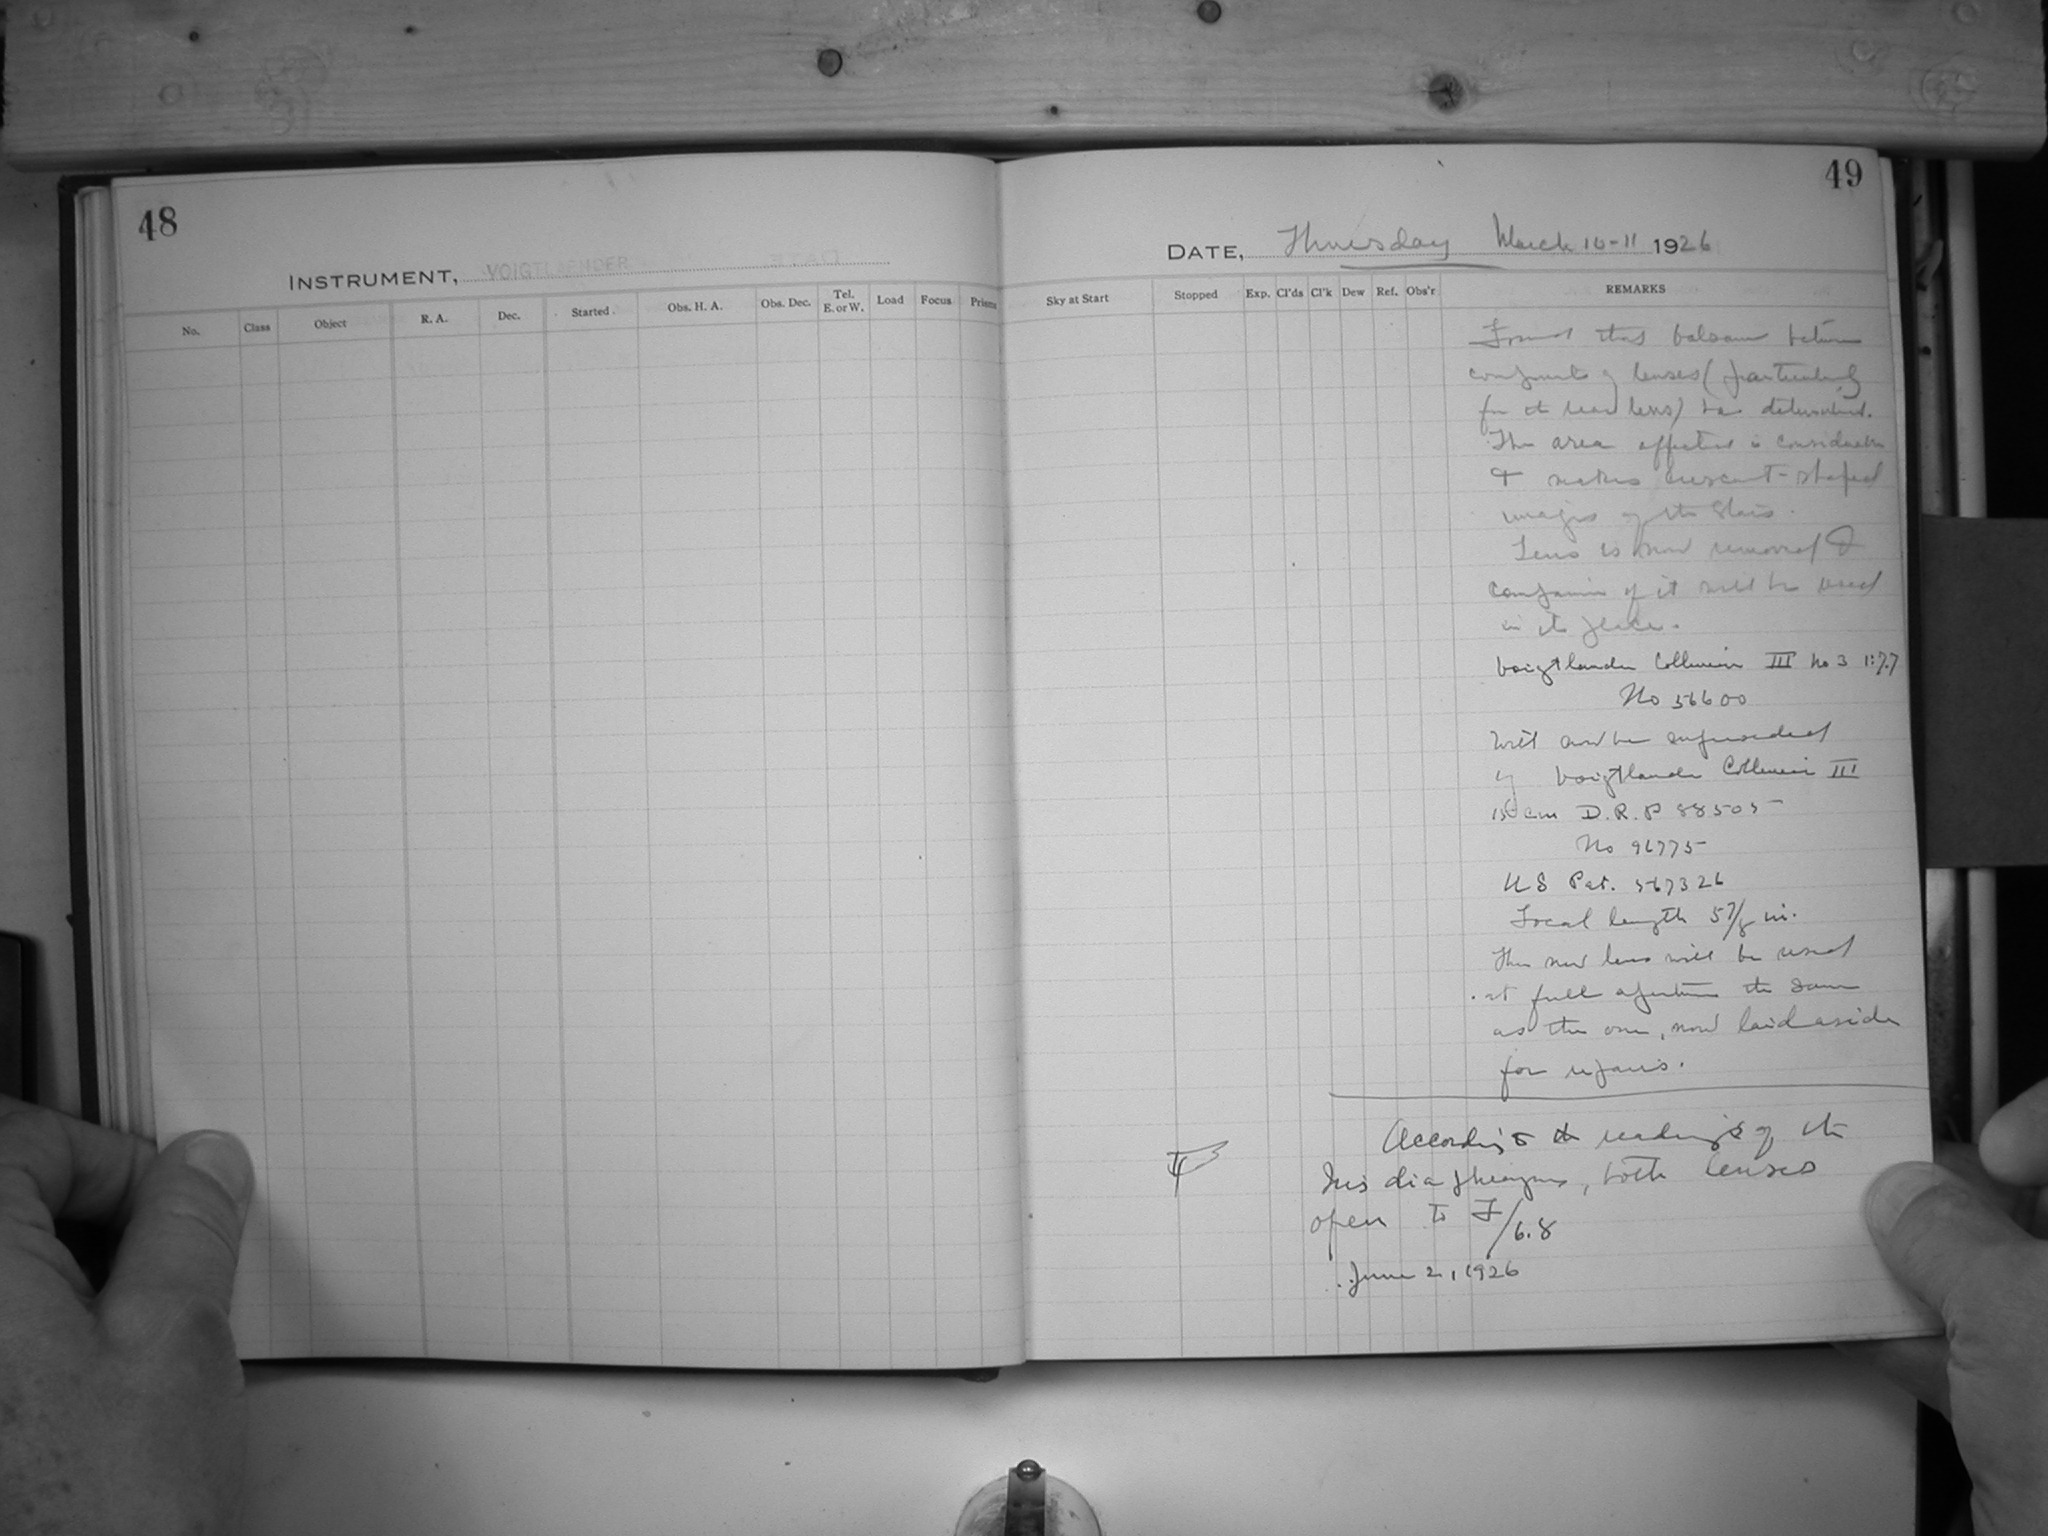 48
INSTRUMENT, VOIGTLAENDER
No. Class Object R. A. Dec. Started Obs. H. A. Obs. Dec. Tel. E. or W. Load Focus Prisms
49
DATE, Thursday March 10-11 1926
Sky at Start Stopped Exp. Cl'ds Cl'k Dew Ref. Obs'r REMARKS
Found that balsam between
components of lenses (particularly
for the rear lens) has deteriorated.
The area affected is considerable
& makes crescent-shaped
images of the stars.
Lens is now removed &
companion of it will be used
in its place.
Voigtlander Collinear III No 3 1:7.7
No 56600
Will now be superseded
by Voigtlander Collinear III
15 cm D.R.P 88505
No 96775
US Pat. 567326
Focal length 5 7/8 in.
The new lens will be used
at full aperture the same
as the one, now laid aside
for repairs.
According to the readings of the
Iris diaphragms, both lenses
open to F/6.8
June 2, 1926